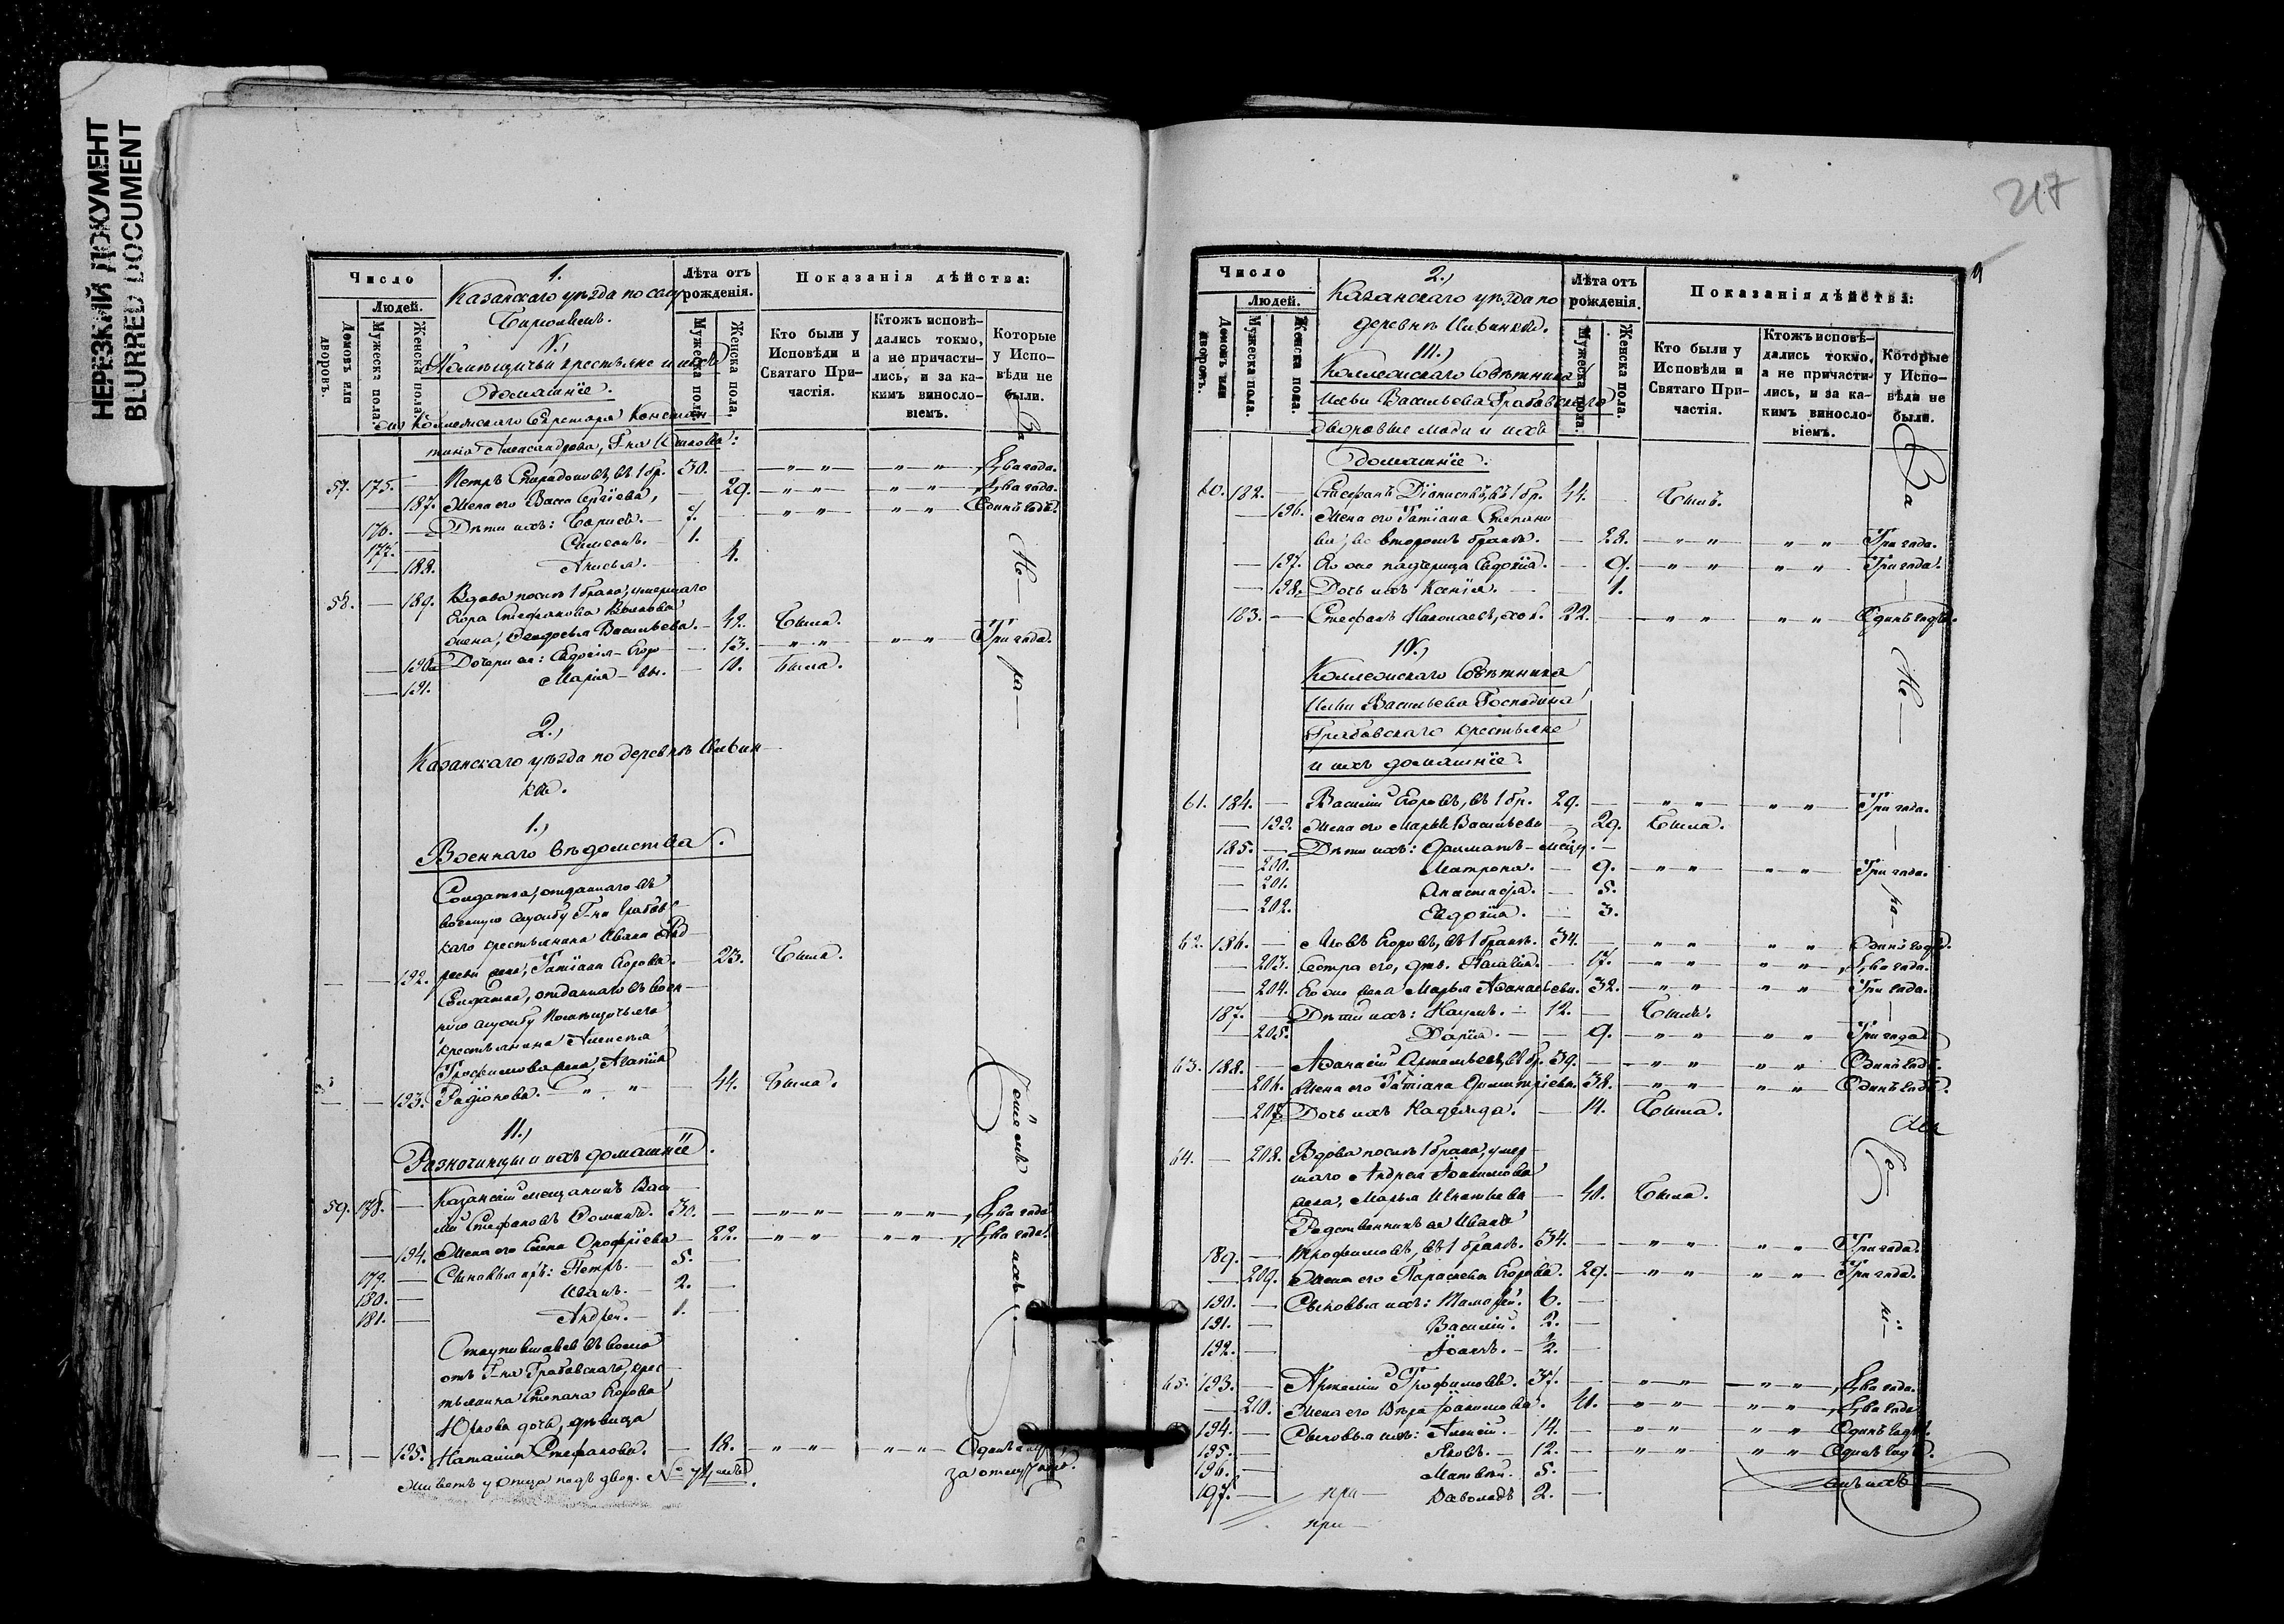 НЕРЕЗКИЙ ДОКУМЕНТ
BLURRED DOCUMENT
Число
Людей.
Домовъ или дворовъ.
Мужеска пола.
Женска пола.
1.
Казанскаго уѣзда по селу
V.,
Помѣщичьи крестьяне и ихъ
домашнiе.
Лѣта отъ рожденія.
Мужеска пола.
Женска пола.
Показанія дѣйства:
Кто были у Исповѣди и Святаго Причастія.
Ктожъ исповѣдались токмо, а не причастились, и за какимъ винословіемъ.
Которые у Исповѣди не были.
57. 175. — Петръ Спиридоновъ, въ 1 бр. 30. — „ „ „ „ Два года.
— 187. Жена его Васса Сергiева, — 29. „ „ „ „ Два года.
176. — Дѣти ихъ: Борисъ. — 7. — „ „ „ „ Одинъ годъ.
177. — Симеонъ. — 1.
— 188. Анисья. — 4.
58. — 189. Вдова послѣ 1 брака, умершаго
Егора Стефанова
жена, Васильева. — 42. Была.
— 190. Дочери ея: Евдокiя — Егоро — 13. „ „ „ „ Три года.
— 191. Марiя — вы. — 10. Была.
2.,
Казанскаго уѣзда по деревнѣ Ивин
кѣ.
1.,
Военнаго вѣдомства.
Солдатка, отданнаго въ
военную службу Г-на Грабовс
каго крестьянина Ивана Анд
— — 192. реева жена, Татiана Егорова. — 23. Была.
Солдатка, отданнаго въ воен
ную службу помѣщичьяго
крестьянина Алексѣя
Трофимова жена, Агапiя
— — 193. Радiонова. — „ „ — 44. Была.
11.,
Разночинцы и ихъ домашнiе.
59. 178. — Казанскiй мещанинъ Васи
лiй Стефановъ 30. — „ „ „ „ Два года.
— 194. Жена его Елена Онофрiева — 22. „ „ „ „ Два года.
179. — Сыновья ихъ: Петръ. — 5. —
180. — Иванъ. — 2. —
181. — Андрей. — 1. —
Отступившаяся въ
отъ Г-на Грабовскаго, крес
тьянина Степана Егорова
дочь, дѣвица
— — 195. Наталiя Стефанова. — 18. „ „ „ „
живетъ у отца подъ двор. № 74
217
Число
Людей.
Домовъ или дворовъ.
Мужеска пола.
Женска пола.
2.,
Казанскаго уѣзда по
деревнѣ Ивинкѣ.
111.,
Коллежскаго Совѣтника
Ильи Васильева Грабовскаго
дворовые люди и ихъ
домашнiе.
Лѣта отъ рожденія.
Мужеска пола.
Женска пола.
Показанія дѣйства:
Кто были у Исповѣди и Святаго Причастія.
Ктожъ исповѣдались токмо, а не причастились, и за какимъ винословіемъ.
Которые у Исповѣди не были.
За
60. 182. — Стефанъ Дiонисiевъ, въ 1 бр. 44. — Былъ.
— 196. Жена его Татiана Степано
ва, во второмъ бракѣ. — 28. „ „ „ „ Три года.
— 197. Его же падчерица Евдокiя. — 9. „ „ „ „ Три года.
— 198. Дочь ихъ Ксенiя. — 1.
183. — Стефанъ Николаевъ, хол. 22. — „ „ „ „ Одинъ годъ.
1V.,
Коллежскаго Совѣтника
Ильи Васильева Господина
Грабовскаго крестьяне
и ихъ домашнiе.
61. 184. — Василiй Егоровъ, въ 1 бр. 29. — „ „ „ „ Три года.
— 199. Жена его Марья Васильева — 29. Была.
185. — Дѣти ихъ:
— 200. Матрона. — 9. „ „ „ „ Три года.
— 201. Анастасiя. — 5.
— 202. Евдокiя. — 3.
62. 186. — Iовъ Егоровъ, въ 1 бракѣ. 34. — „ „ „ „ Одинъ годъ.
— 203. Сестра его, дѣв. Пелагiя. — 17. „ „ „ „ Два года.
— 204. Его же жена Марья Аѳанасьева. 32. „ „ „ „ Три года.
187. — Дѣти ихъ: Наумъ. — 12. — Былъ.
— 205. Дарiя. — 9. „ „ „ „ Три года.
63. 188. — Аѳанасiй Артемьевъ, въ 1 бр. 39. — „ „ „ „ Одинъ годъ.
— 206. Жена его Татiана Димитрiева. 38. „ „ „ „ Одинъ годъ.
— 207. Дочь ихъ Надежда. — 14. Была.
64. — 208. Вдова послѣ 1 брака, умер
шаго Андрея Iоакимова
жена, Марья Игнатьева — 40. Была.
Родственникъ ея Иванъ
189. — Трофимовъ, въ 1 бракѣ. 34. — „ „ „ „ Три года.
— 209. Жена его Параскева Егорова. 29. „ „ „ „ Три года.
190. — Сыновья ихъ: Тимофей. 6. —
191. — Василiй. 2. —
192. — Iоаннъ. ½. —
65. 193. — Трофимовъ. 37. — „ „ „ „ Два года.
— 210. Жена его Вѣра Iоакимова. 41. „ „ „ „ Два года.
194. — Сыновья ихъ: Алексiй. 14. — „ „ „ „ Одинъ годъ.
195. — Яковъ. 12. — „ „ „ „ Одинъ годъ.
196. — Матвѣй. 5. —
197. — Всеволодъ 2. —
при